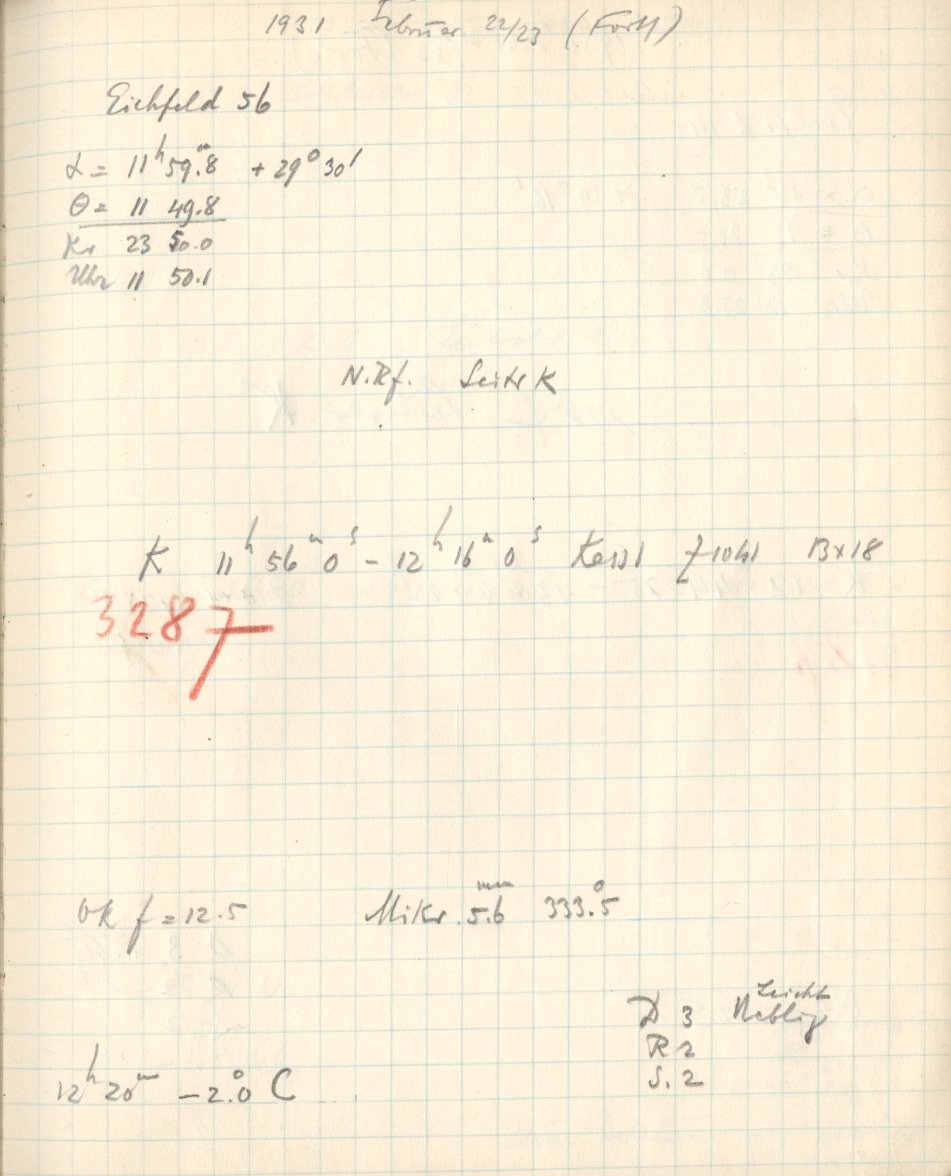 1931 Februar 22/23 (Forts)
Eichfeld 56
α = 11ʰ 59ᵐ.8 + 29° 30'
Θ = 11 49.8
Kr 23 50.0
Uhr 11 50.1
N.Rf. Seite K
K 11ʰ 56ᵐ 0ˢ - 12ʰ 16ᵐ 0ˢ 13x18
3287
Ok f = 12.5 Mikr. 5.6 mm 333°.5
D 3 Leicht Neblig
R 2
S. 2
12ʰ 20ᵐ -2°.0 C